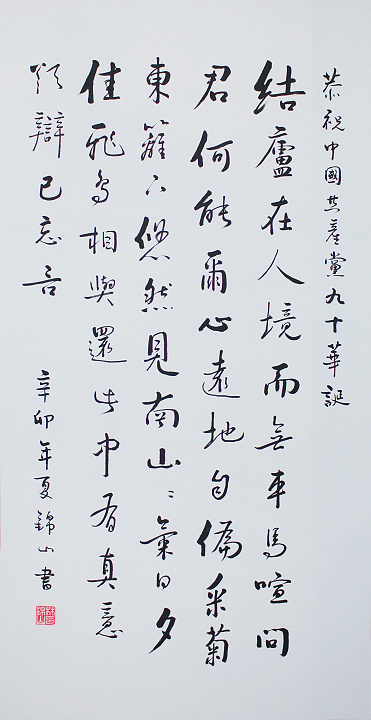 恭祝中國共產黨九十華誕
結廬在人境而無車馬喧問
君何能爾心遠地自偏采菊
東籬下悠然見南山〻氣日夕
佳飛鳥相與還此中有真意
欲辯已忘言
辛卯年夏錦山書